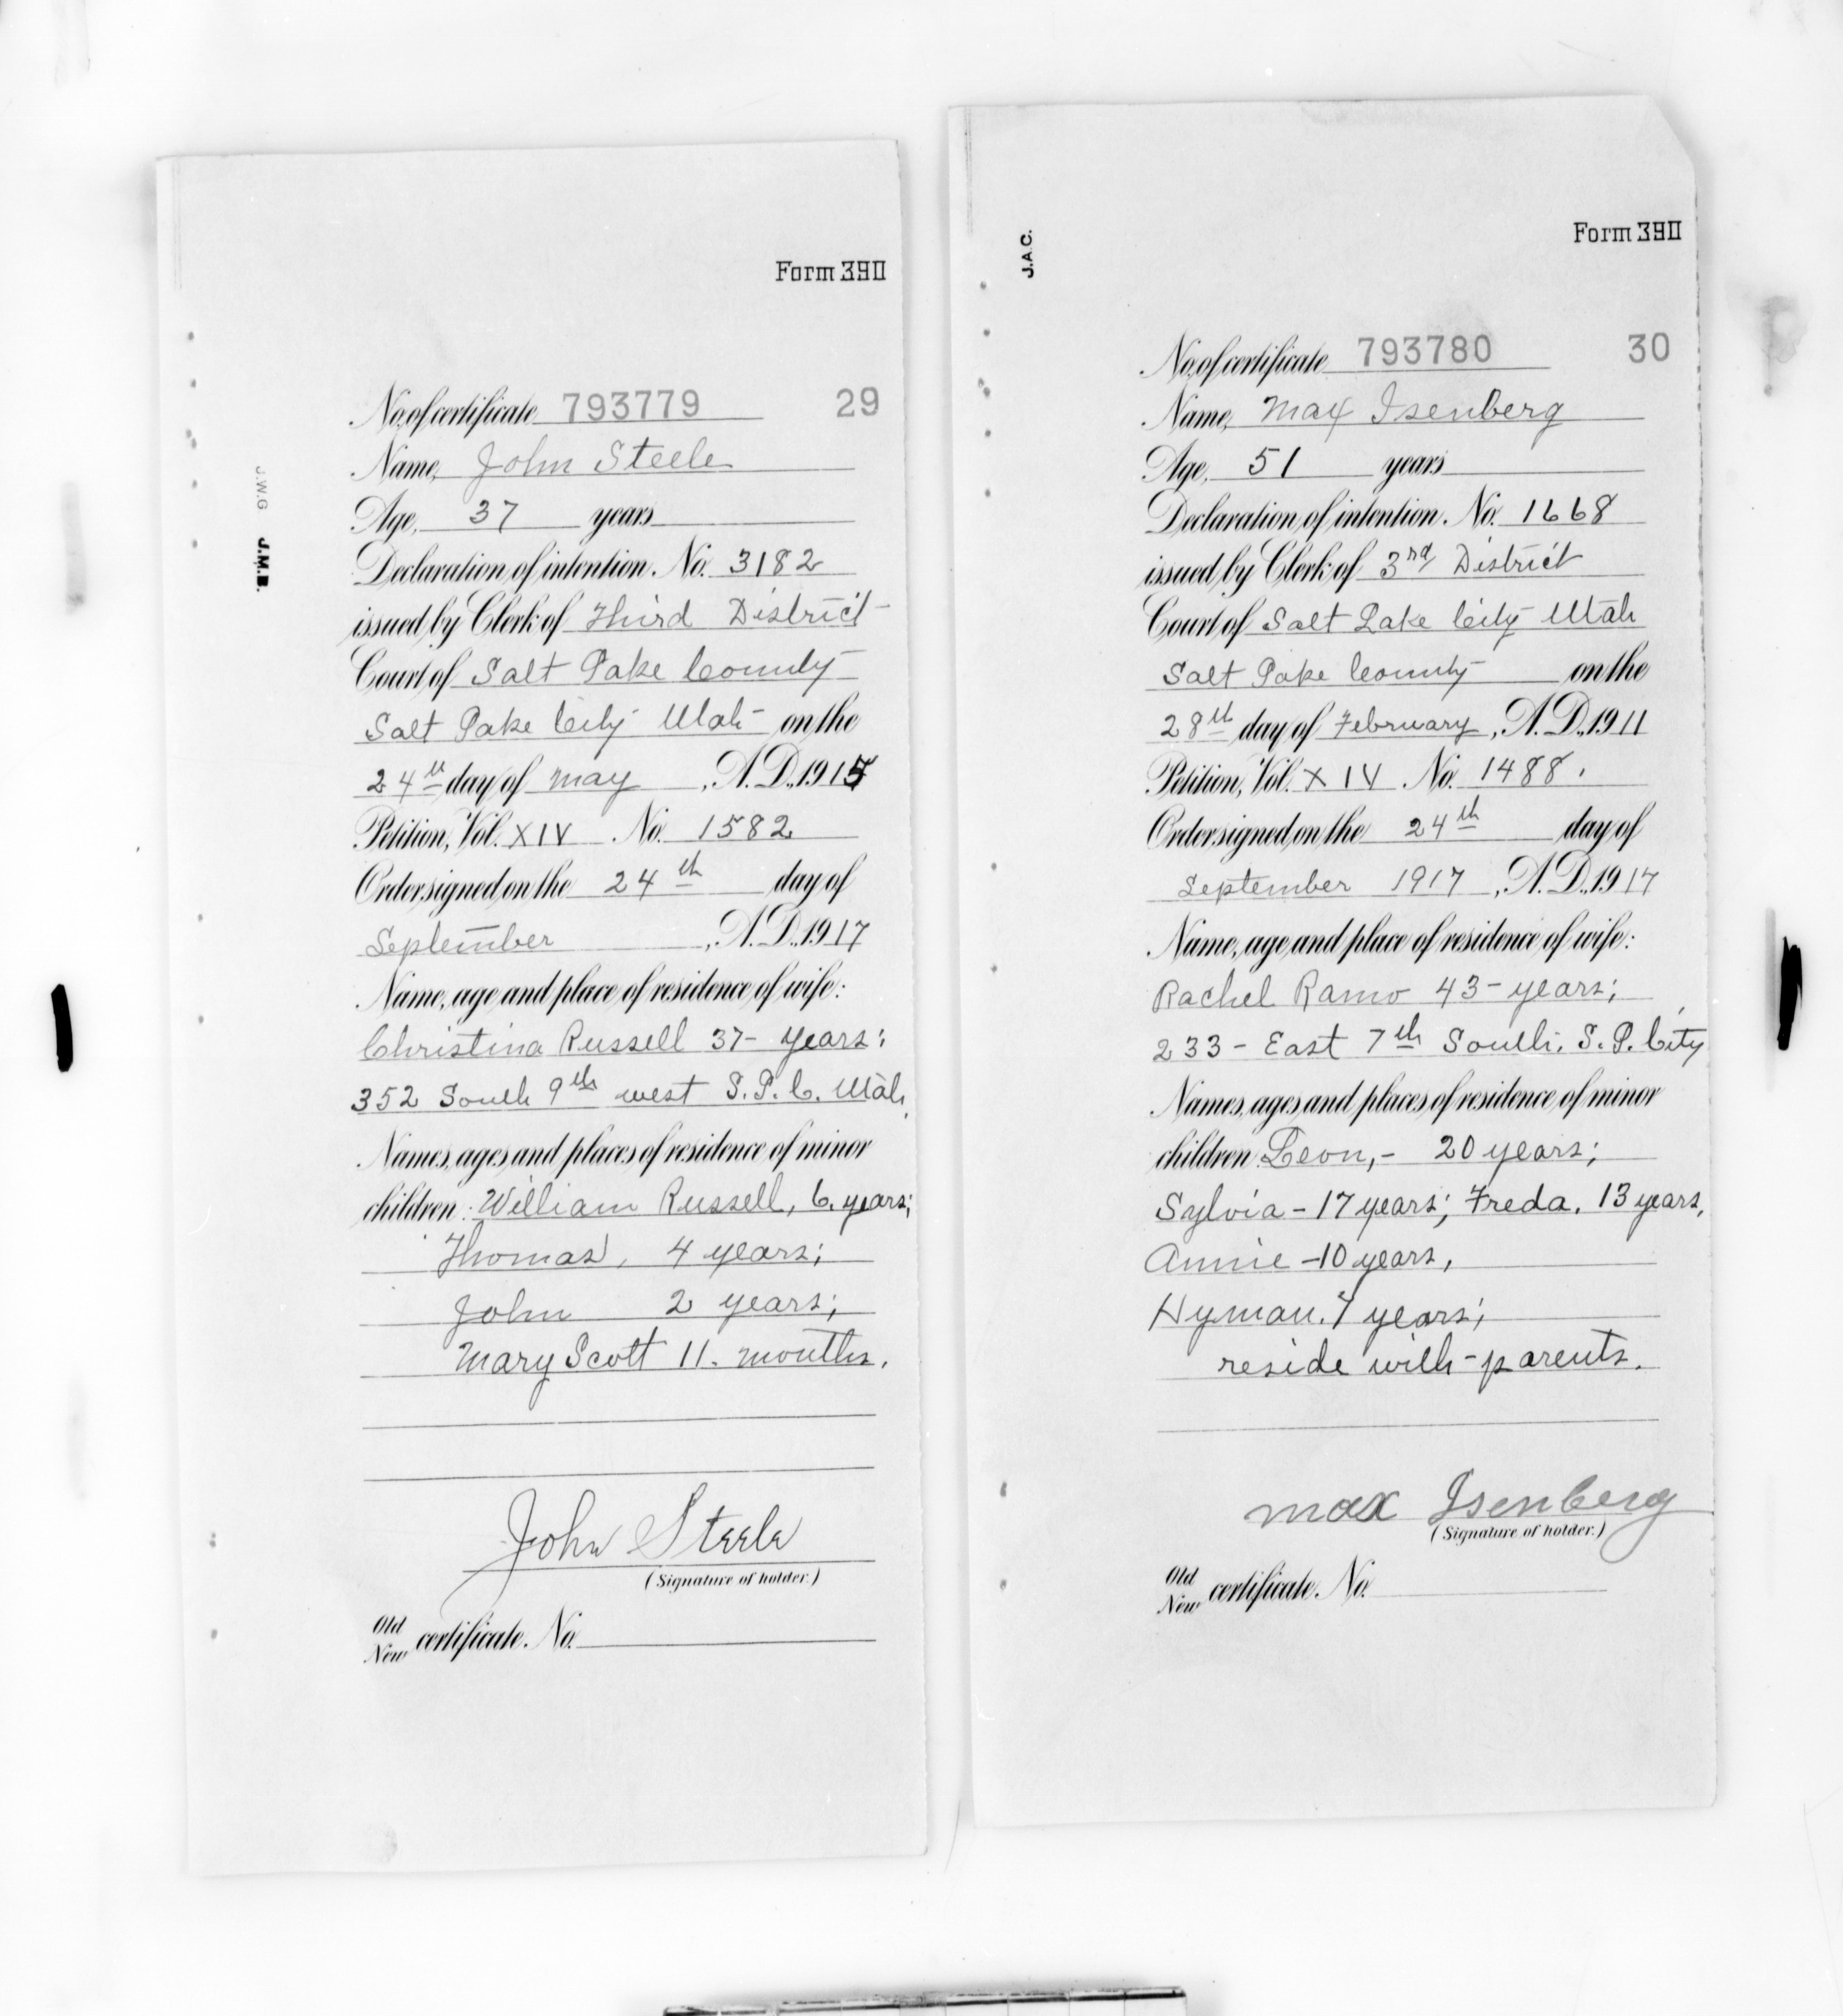 Form 390
No. of certificate 793779 29
Name, John Steele
Age, 37 years
J.W.G J.M.B.
Declaration of intention. No. 3182
issued by Clerk of Third District
Court of Salt Lake County
Salt Lake City Utah on the
24th day of May , A.D. 1915
Petition, Vol. XIV No. 1582
Order signed on the 24th day of
September , A.D. 1917
Name, age and place of residence of wife:
Christina Russell 37- years;
352 South 9th west S.L.C. Utah,
Names, ages and places of residence of minor
children: William Russell, 6. years;
Thomas, 4 years;
John 2 years;
Mary Scott 11. months.
John Steele
(Signature of holder.)
Old
New certificate. No.
Form 390
J.A.C.
No. of certificate 793780 30
Name, Max Isenberg
Age, 51 years
Declaration of intention. No. 1668
issued by Clerk of 3rd District
Court of Salt Lake City Utah
Salt Lake County on the
28th day of February, A.D. 1911
Petition, Vol. XIV No. 1488.
Order signed on the 24th day of
September 1917, A.D. 1917
Name, age and place of residence of wife:
Rachel Ramo 43- years;
233- East 7th South, S.L. City
Names, ages and places of residence of minor
children Leon,- 20 years;
Sylvia - 17 years; Freda, 13 years,
Annie -10 years,
Hyman. 7 years;
reside with-parents.
Max Isenberg
(Signature of holder.)
Old
New certificate. No.